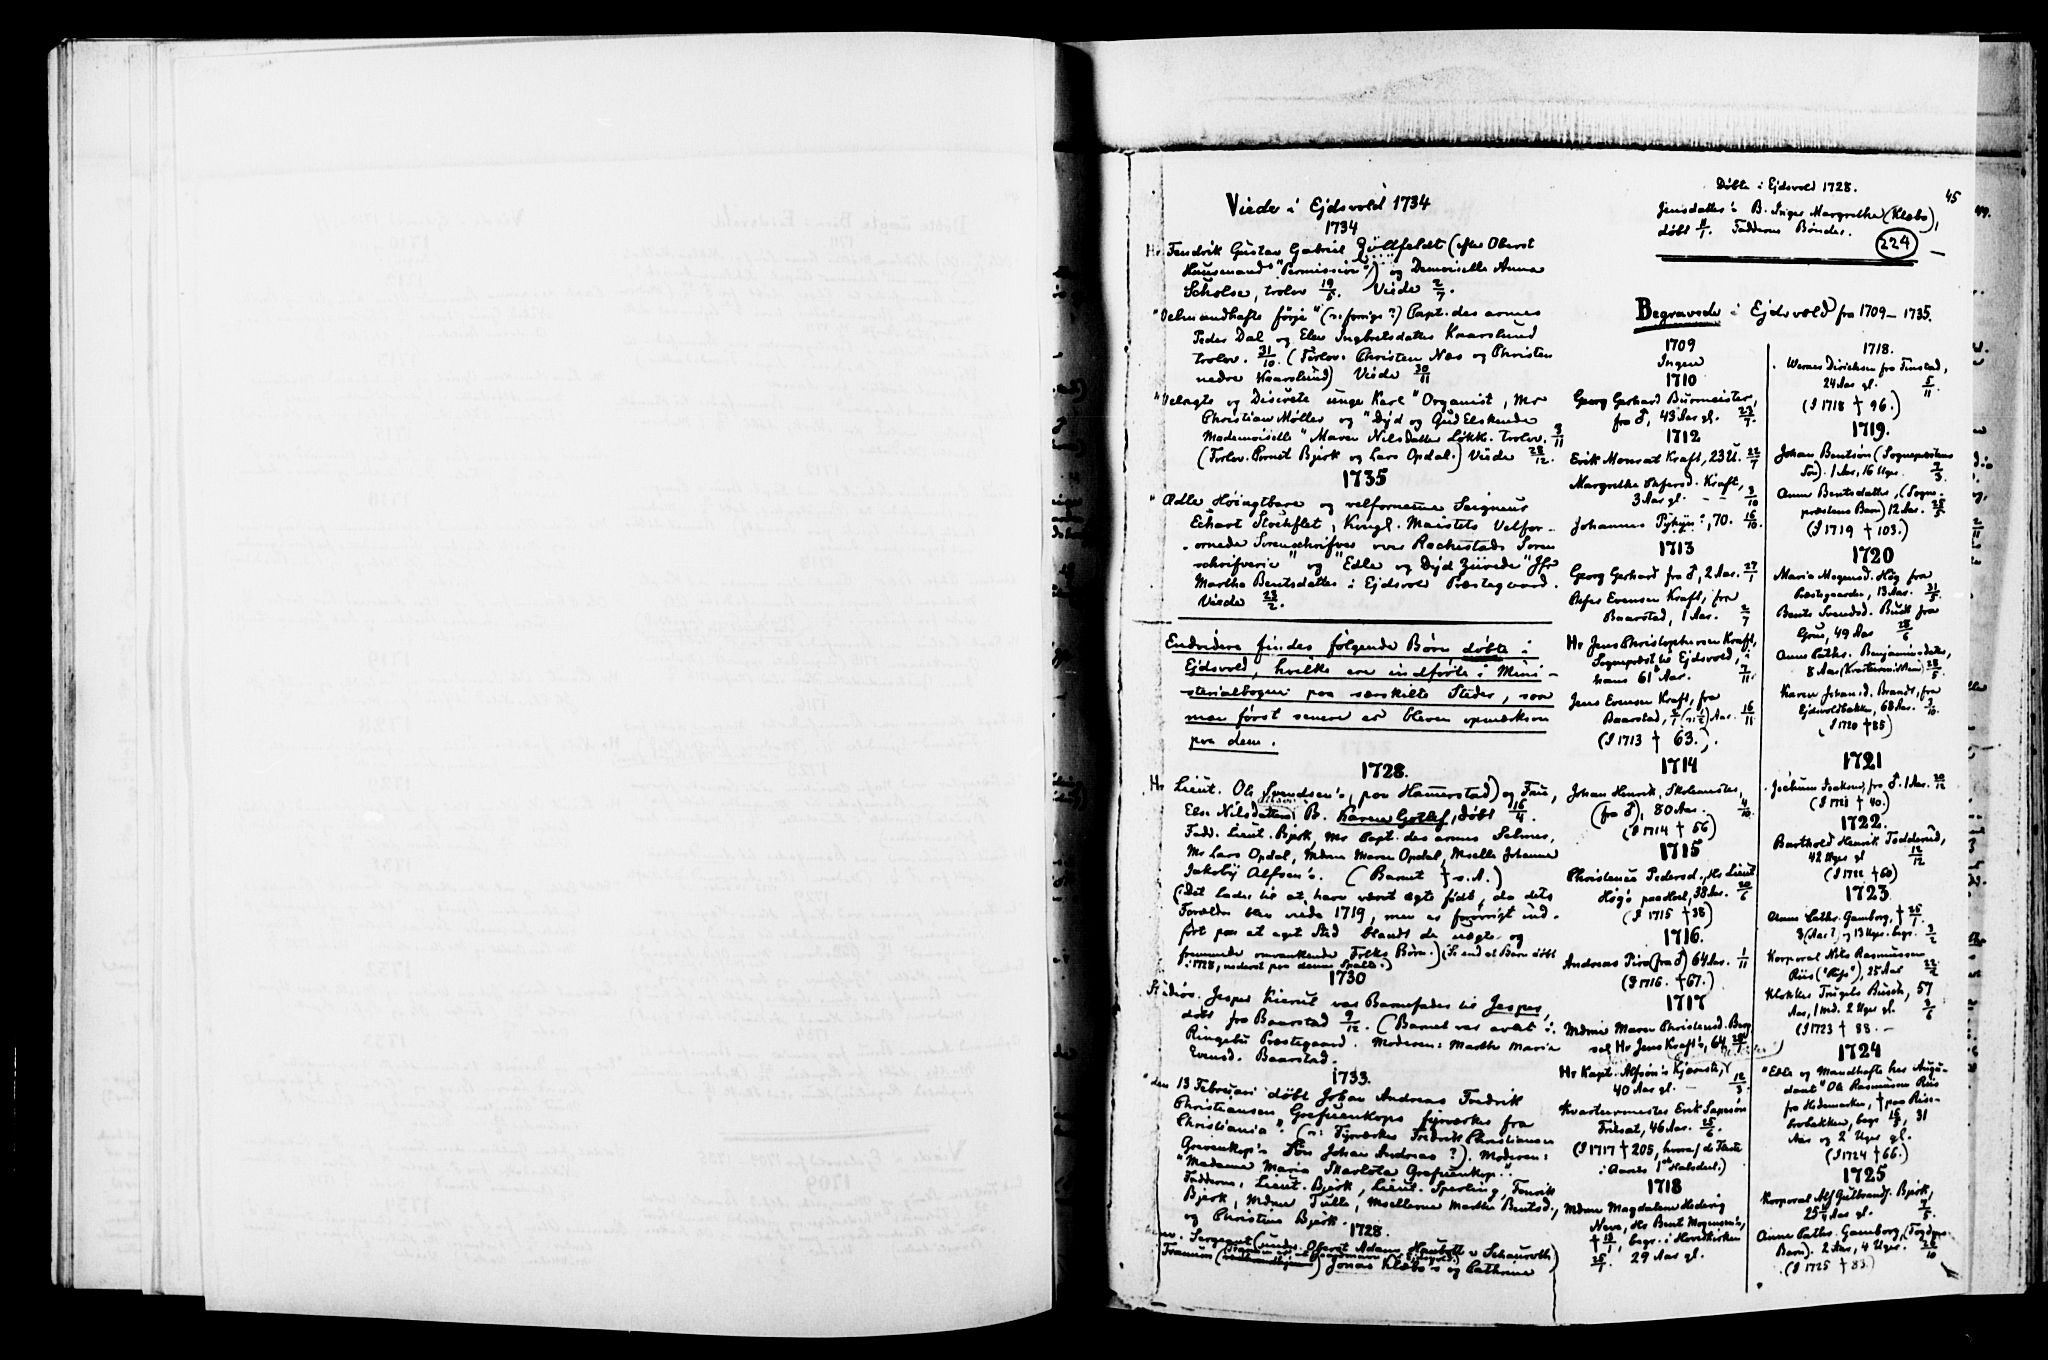 Viede i Ejdsvold 1734
1734
Hr Fendrik Gustav Gabriel Zöllfeldt (efter Oberst
Hausmands "Permission") og Demoiselle Anna
Scholse, trolov 19/5. Viede 2/7.
"Velmandhafte förje" (ɔ: forrige?) Capt. des armes
Peder Dal og Elen Ingbretsdatter Kaarslund
trolov. 31/10. (Forlov: Christen Næs og Christen
nedre Kaarslund) Viede 30/11
"Velagte og Discrete unge Karl" Organist, Mr
Christian Møller og "Dÿd og Gud Elskende
Mademoiselle" Maren Nilsdatter Løkke. trolov. 3/11
(Forlov. Bernt Bjerk og Lars Opdal.) Viede 28/12.
1735
"Ædle Höiagtbare og velfornemme Seigneur
Echart Stockflet, Kongl. Maistets Velfor-
ornede Sorenschrifver over Rachestads Soren
schrifverie" og "Edle og Dÿd Ziirede" Jfr
Martha Bentsdatter i Ejdsvold Præstegaard.
Viede 23/2.
Endvidere findes følgende Børn døbte i
Ejdsvold, hvilke ere indførte i Mini-
sterialbogen paa særskilte Steder, saa
man først senere er bleven opmærksom
paa dem.
1728.
Hr Lieut. Ole Svendsen's, paa Hamerstad) og Frue,
Else Nilsdatters B. Karen Gotlef, døbt 16/4.
Fadd. Lieut. Bjerk, Mr Capt. des armes Selmer,
Mr Lars Opdal, Mdme Maren Opdal, Mselle Johanne
Jakobÿ Alfsen's. (Barnet † s. A.)
(Det lader til at have været ægte født, da dets
Forældre blev viede 1719, men er forøvrigt ind-
ført paa et eget Sted blandt de uægte og
fremmede omvankende Folks Børn.) (Se end et Barn døbt
i 1728, nederst paa denne Spalte.)
1730
Studios. Jesper Kierul var Barnefader til Jesper,
døbt fra Baarstad 9/12. (Barnet var avlet i
Ringebu Præstegaard. Moderen: Marthe Maria
Evensd. Baarstad.
1733.
"den 13 Februari döbt Johan Andreas Fredrik
Christiansen Grefuenkops fyrverker fra
Christiania". (ɔ: Fÿrværker Fredrik Christiansen
Grevenkop's Søn Johan Andreas?). Moderen:
"Madame Maria Skarlota Grefuenkop."
Fadderne, Lieut. Bjerk, Lieut. Sperling, Fenrik
Bjerk, Mdme Tulle, Msellerne Marthe Bentsd.,
og Christine Bjerk.
1728.
Sergeant (under Oberst Adam Haubolt v Schauroth)
Jonas Klæbo's og Cathrine
Døbte i Ejdsvold 1728.
45
Jensdatter's B. Inger Margrethe (Klæbo),
døbt 11/1. Fadderne Bønder.
224
Begravede i Ejdsvold fra 1709–1735.
1709
Ingen
1710
Georg Gerhard Burmeister,
fra ♂, 43 Aar gl. 23/7.
1712
Erik Monrat Kraft, 23 U. 22/7
Margrethe Chfersd. Kraft,
3 Aar gl. – – 3/10
Johannes Pÿhÿn?, 70. 16/10.
1713
Georg Gerhard fra ♂, 2 Aar. 27/1
Chfer Evensen Kraft, fra
Baarstad, 1 Aar. 2/7
Hr Jens Christophersen Kraft,
Sognepræst til Ejdsvold, i
hans 61de Aar. 7/11.
Jens Evensen Kraft, fra
Baarstad, 2/1 (ɔ: 1/2) Aar. 16/11
(I 1713 † 63.).
1714
Johan Henrik, Skolemester,
(fra ♂), 80 Aar. 4/10.
(I 1714 † 56)
1715
Christence Pedersd., Hr Lieut
Hög's paa Hol, 38 Aar. 20/6
(I 1715 † 38)
1716.
Andreas Piro (fra ♂) 64 Aar. 1/11
(I 1716. † 67.)
1717
Mdme Maren Christensd. Bang
sal Hr Jens Kraft's, 64
Hr Kapt. Alfsøn's Kjæreste,
40 Aar gl. – 12/3.
Kvartermester Erik Larsøn
Friksat, 46 Aar. 25/6.
(I 1717 † 205, hvoraf de fleste
i Aarets 1ste Halvdel.)
1718
Mdme Magdalene Hedevig
Neve, Hr Bent Mogensen's,
† 13/1, begr. i Hovedkirken
25/1. 29 Aar gl.
1718.
Werner Diricksen fra Finstad,
24 Aar gl. 5/11.
(I 1718 † 96.)
1719.
Johan Bentsøn (Sognepræstens
Søn). 1 Aar, 16 Uger. 2/3.
Anne Bentsdatter, (Sogne-
præstens Barn) 12 Aar. 25/5
(I 1719 † 103.)
1720
Maria Mogensd. Høg fra
Præstegaarden, 13 Aar. 31/5.
Bente Svendsd. Busk fra
Grue, 49 Aar 28/6
Anne Cathr. Benjaminsdatter,
8 Aar 28/5.
Karen Johansd. Brandt, fra
Ejdsvoldbakken, 68 Aar. 3/10.
(I 1720 † 85)
1721
Jochum Isaksen, fra ♂. 1 Aar. 20/12
(I 1721 † 40.)
1722.
Barthold Henrik Todderud,
42 Uger gl 12/12
(I 1722 † 60)
1723
Anne Cathr. Gamborg, † 25/1.
3 (Aar?) og 13 Uger. begr. 3/2
Korporal Nils Rasmussen
Riis ("Rÿs"), 25 Aar 22/2
Klokker Trugels Busch, 57
Aar, 1 Md. 2 Uger gl. 3/6
(I 1723 † 88. –
1724
"Edle og Mandhafte her Auju-
dant" Ole Rasmussen Riis
fra Hedemarken, † paa Riis-
lovbakken, begr 16/3, 31
Aar og 2 Uger gl.
(I 1724 † 66.)
1725
Korporal Alf Gulbrandsf. Bjerk,
25 1/4 Aar gl. 3/5.
Anne Cathr. Gamborg, (Fogdens
Barn). 2 Aar, 4 Uger. 28/10
(I 1725 † 83.)